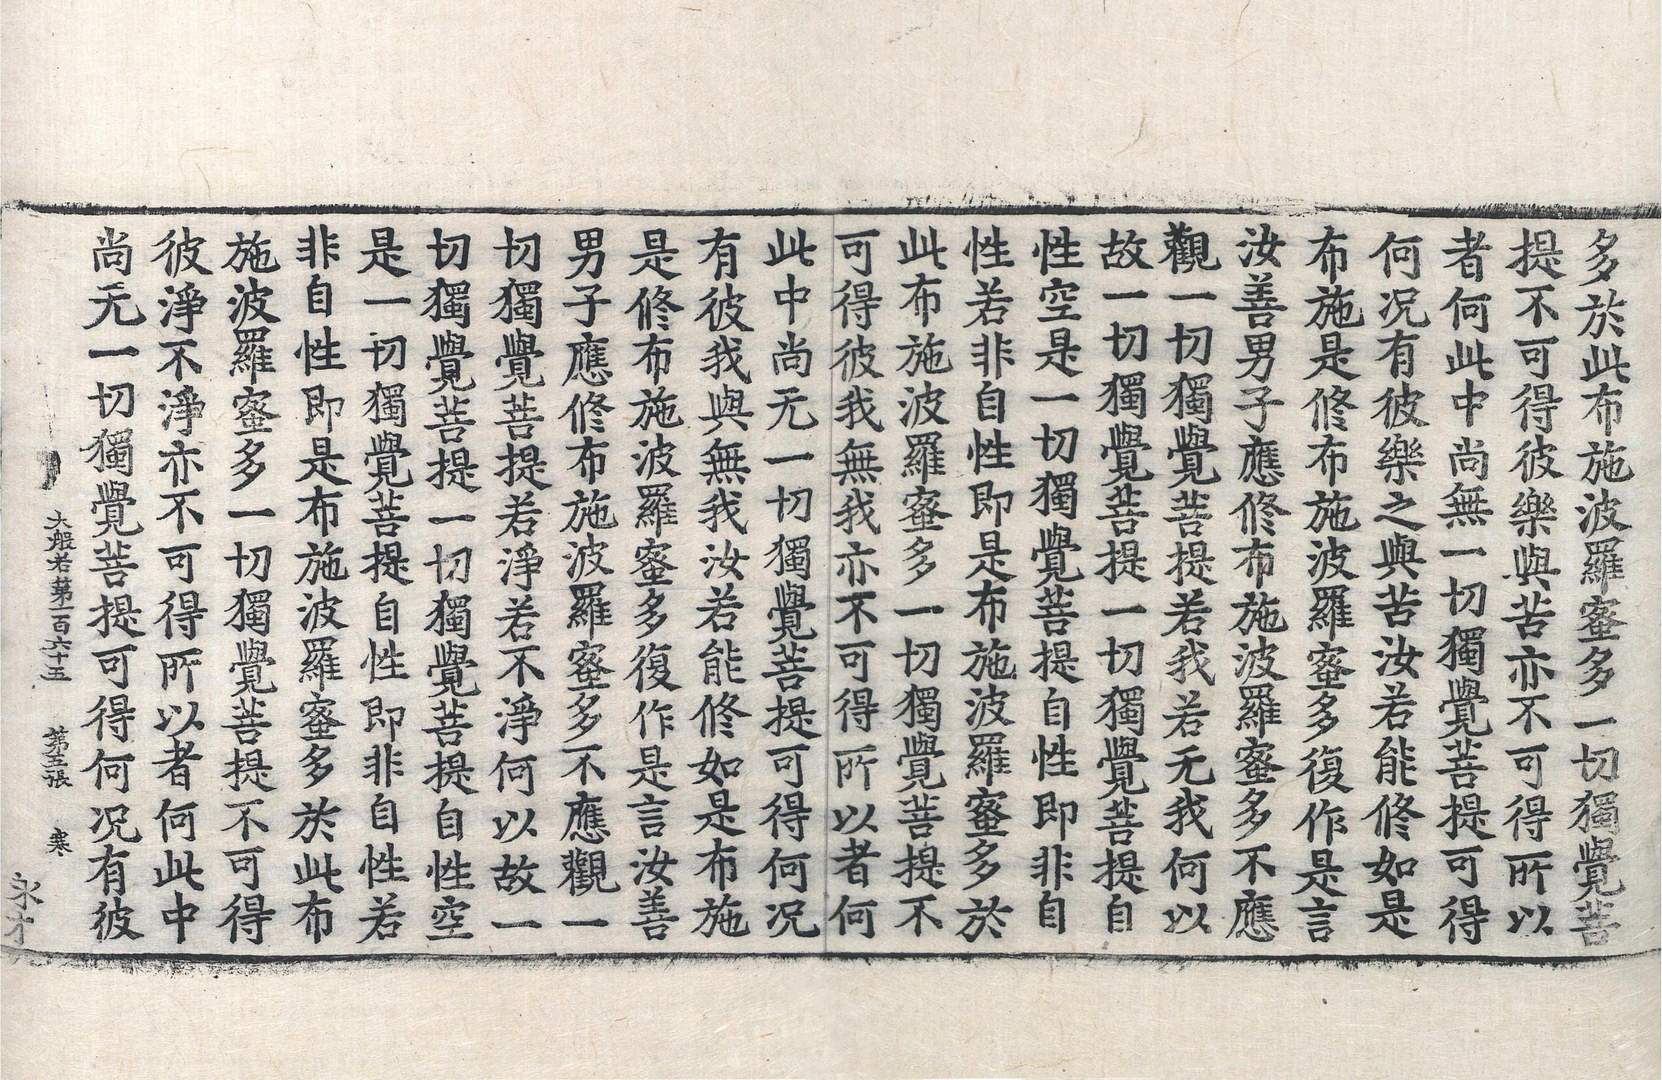 多於此布施波羅蜜多一切獨覺菩
提不可得彼樂與苦亦不可得所以
者何此中尚無一切獨覺菩提可得
何况有彼樂之與苦汝若能修如是
布施是修布施波羅蜜多復作是言
汝善男子應修布施波羅蜜多不應
觀一切獨覺菩提若我若无我何以
故一切獨覺菩提一切獨覺菩提自
性空是一切獨覺菩提自性即非自
性若非自性即是布施波羅蜜多於
此布施波羅蜜多一切獨覺菩提不
可得彼我無我亦不可得所以者何
此中尚无一切獨覺菩提可得何况
有彼我與無我汝若能修如是布施
是修布施波羅蜜多復作是言汝善
男子應修布施波羅蜜多不應觀一
切獨覺菩提若淨若不淨何以故一
切獨覺菩提一切獨覺菩提自性空
是一切獨覺菩提自性即非自性若
非自性即是布施波羅蜜多於此布
施波羅蜜多一切獨覺菩提不可得
彼淨不淨亦不可得所以者何此中
尚无一切獨覺菩提可得何况有彼
大般若第一百六十五 第五張 寒
永才